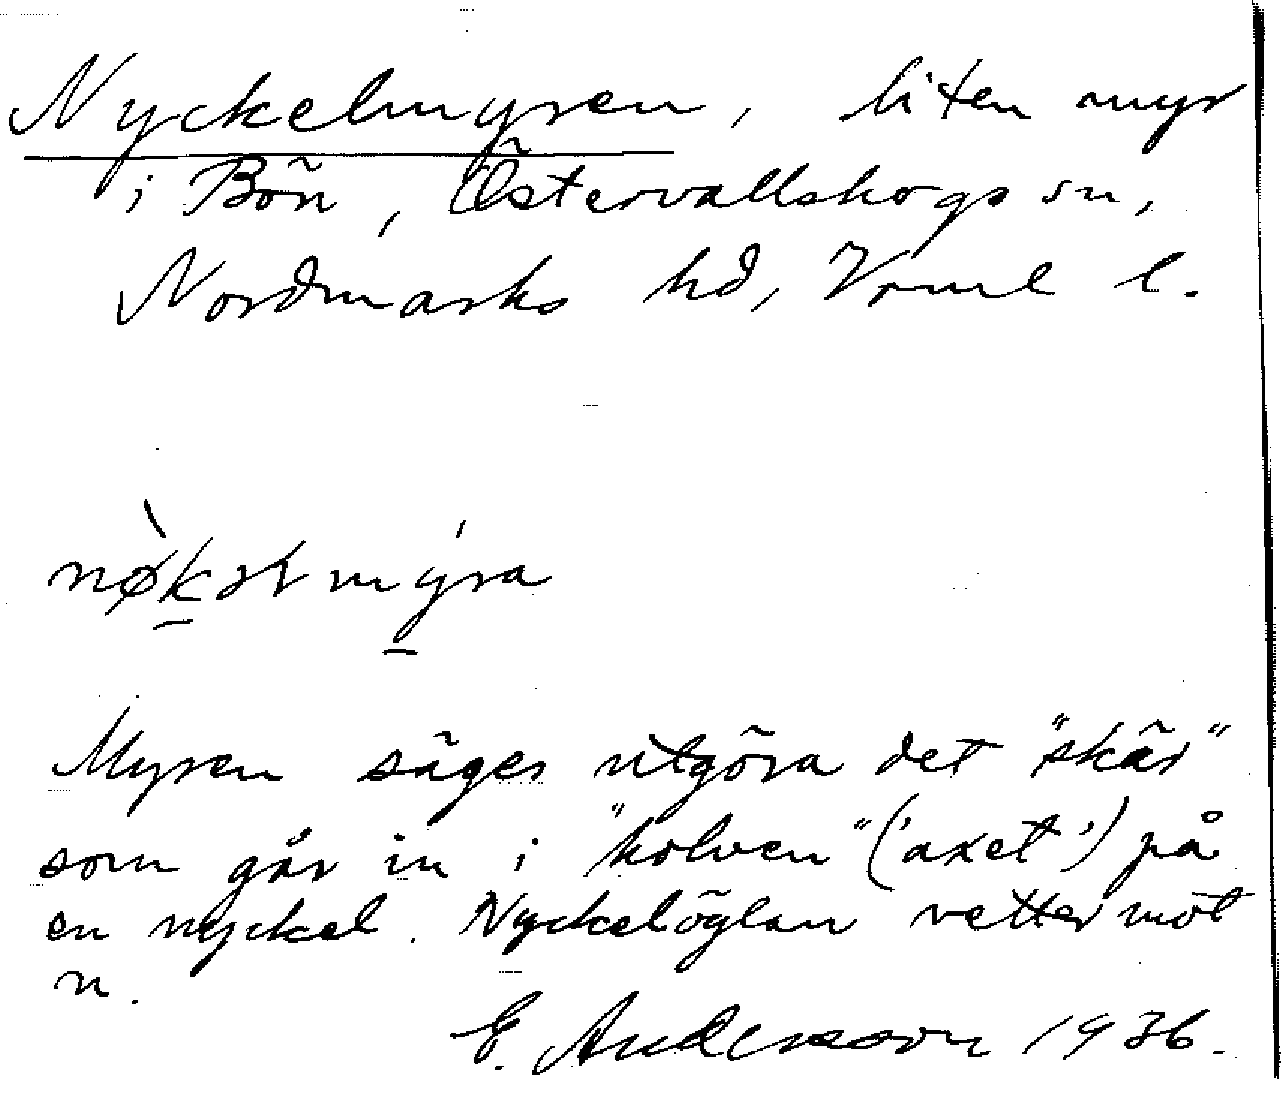 Nyckelmyren, liten myr
i Bön, Östervallskogs sn,
Nordmarks hd, Vrml l.
nø̀kəlmýra
Myren säges utgöra det "skär"
som går in i "holven" ('axet') på
en nyckel. Nyckelöglan vetter mot
n.
E. Andersson 1936.